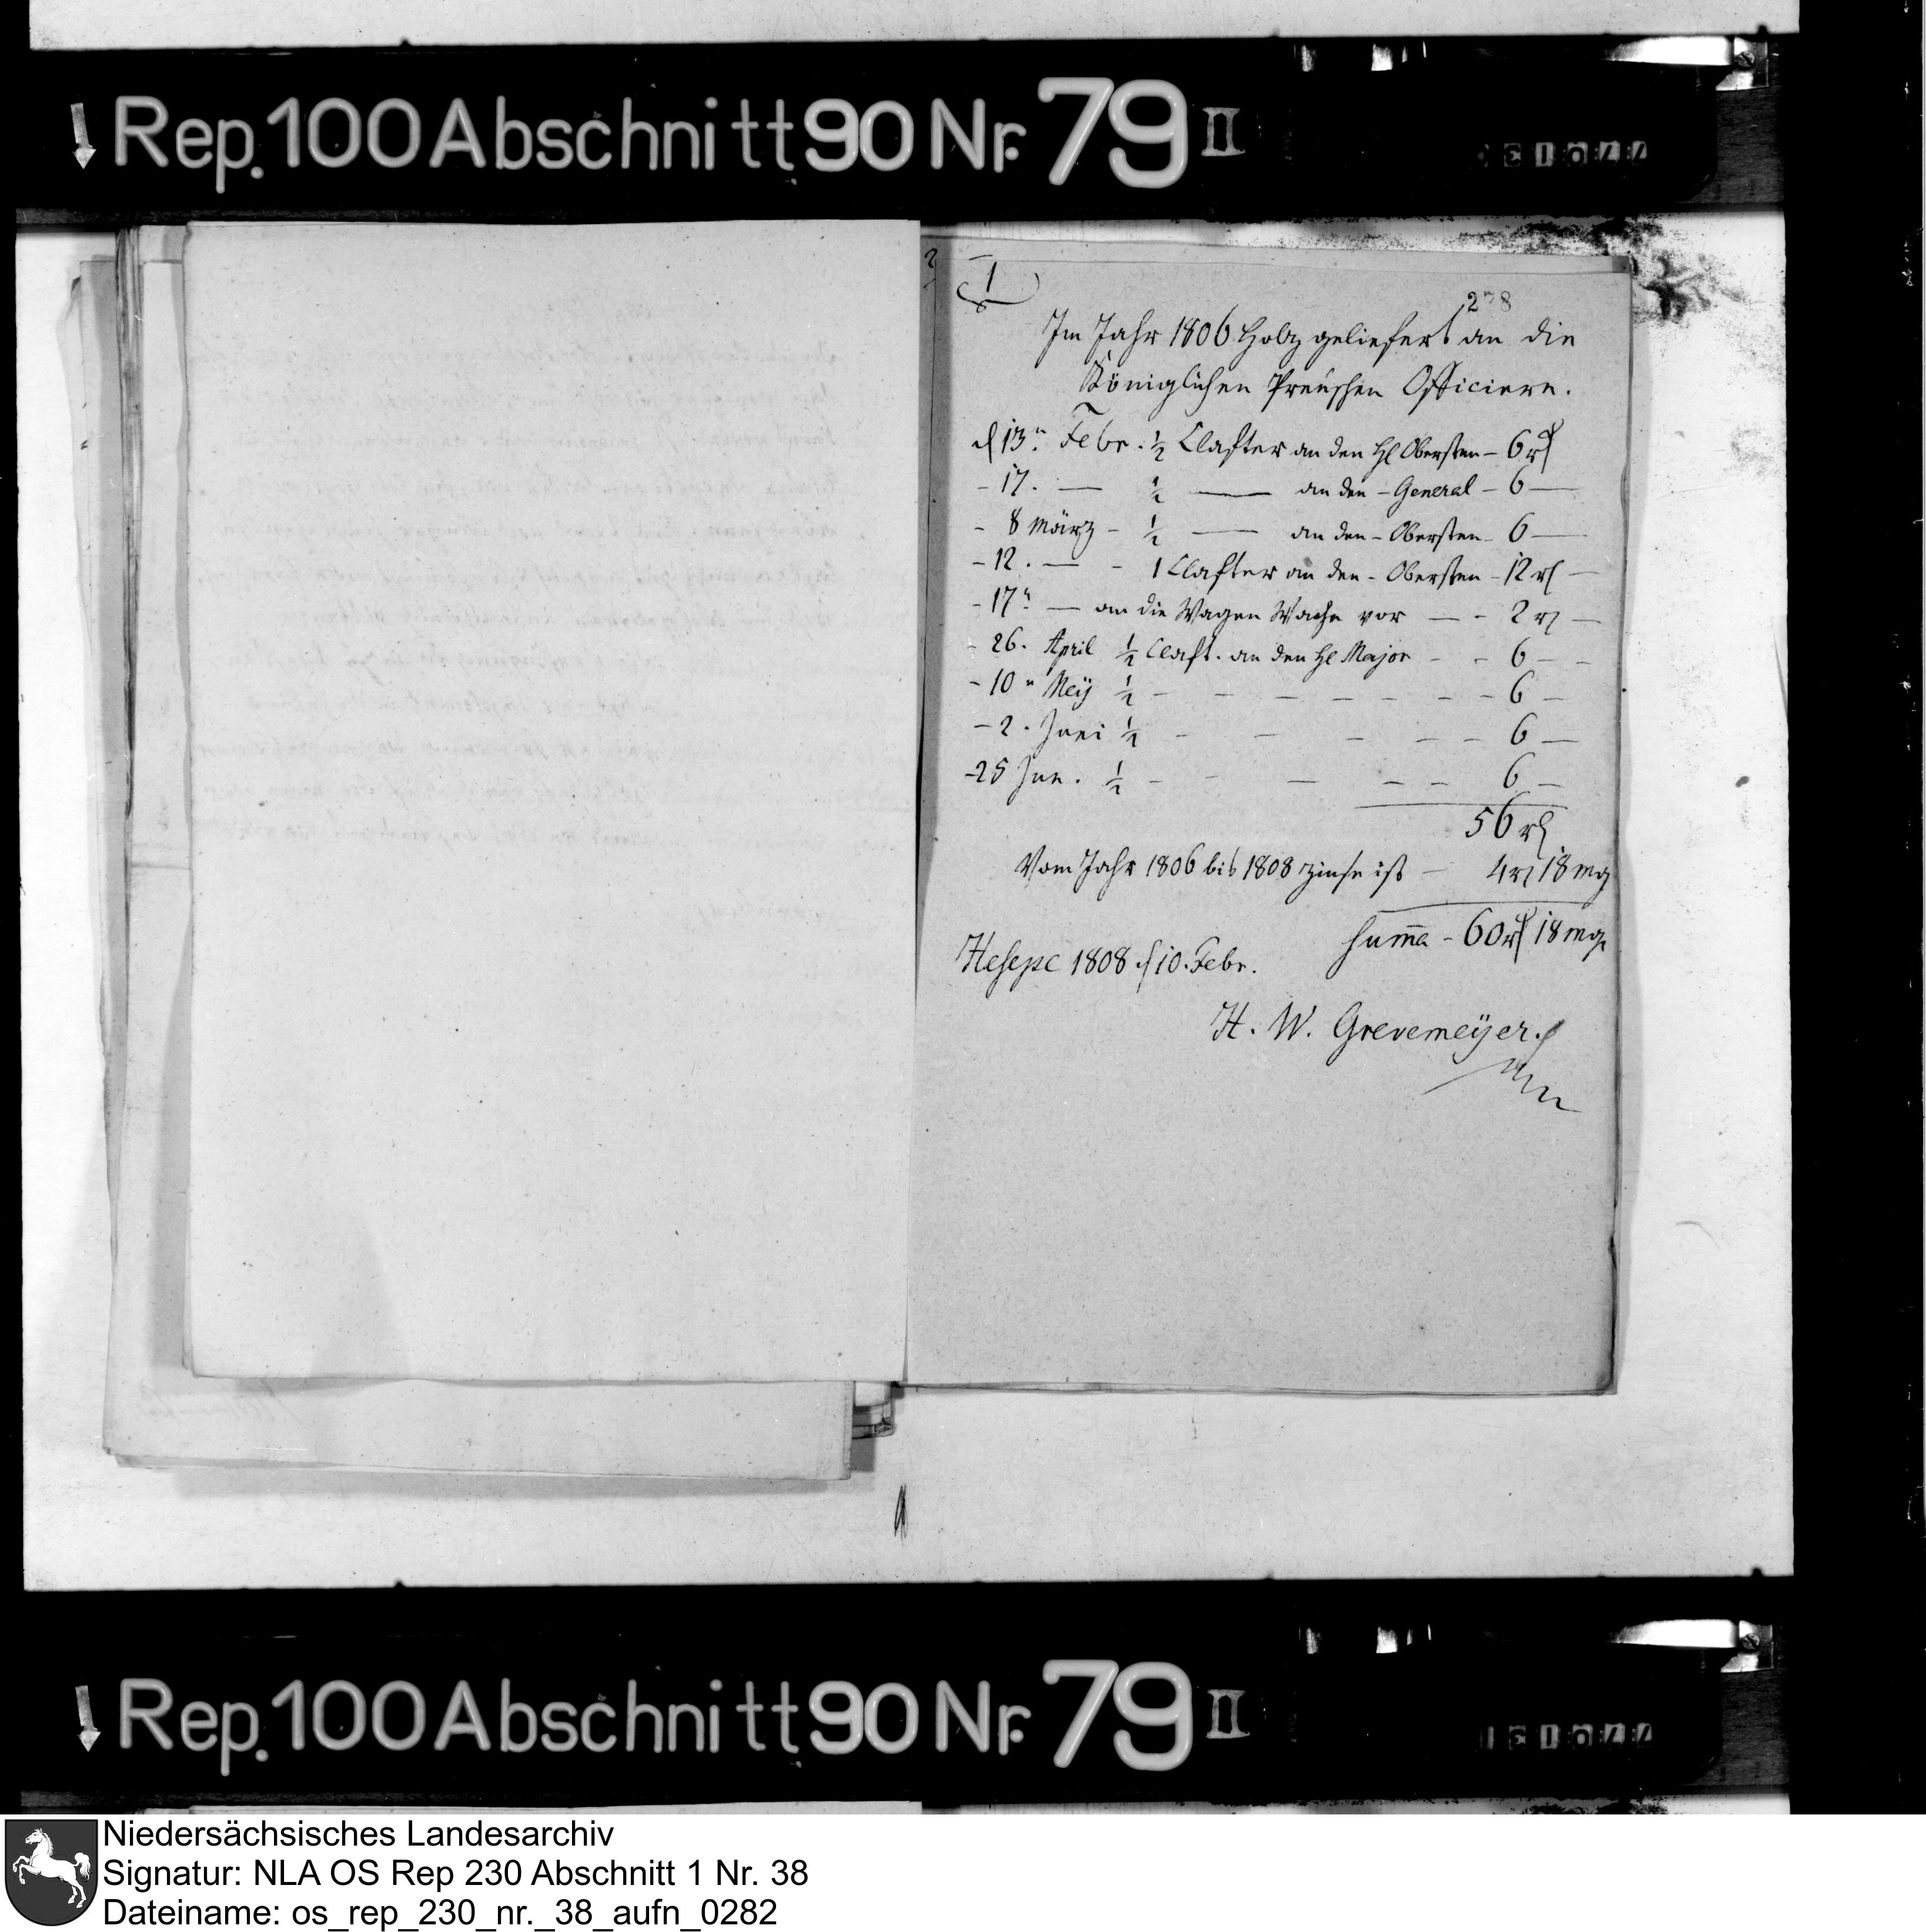 Rep. 100 Abschnitt 90 Nr. 79 II
1
278
Im Jahr 1806 Holtz geliefert an die
Königlichen Preuschen Officiere.
d 13n Febr. ½ Clafter an den Hl Obersten – 6 rt
- 17. — ½ — an den - General – 6 —
- 8 März - ½ — an den - Obersten – 6 —
- 12. — - 1 Clafter an den - Obersten – 12 rt —
- 17n — an die Wagen Wache vor — - 2 rt —
- 26. April ½ Claft. an den Hl Major - - 6 - -
- 10n Meÿ ½ - - - - - - - - 6 —
- 2. Juni ½ - - - - - - 6 —
- 25 Jun. ½ - - — - - 6 —
56 rt
Vom Jahr 1806 bis 1808 zinse ist — 4 rt 18 mg
Suma - 60 rt 18 mg
Hesepe 1808 d 10. Febr.
H. W. Grevemeÿer.
Rep. 100 Abschnitt 90 Nr. 79 II
Niedersächsisches Landesarchiv
Signatur: NLA OS Rep 230 Abschnitt 1 Nr. 38
Dateiname: os_rep_230_nr._38_aufn_0282